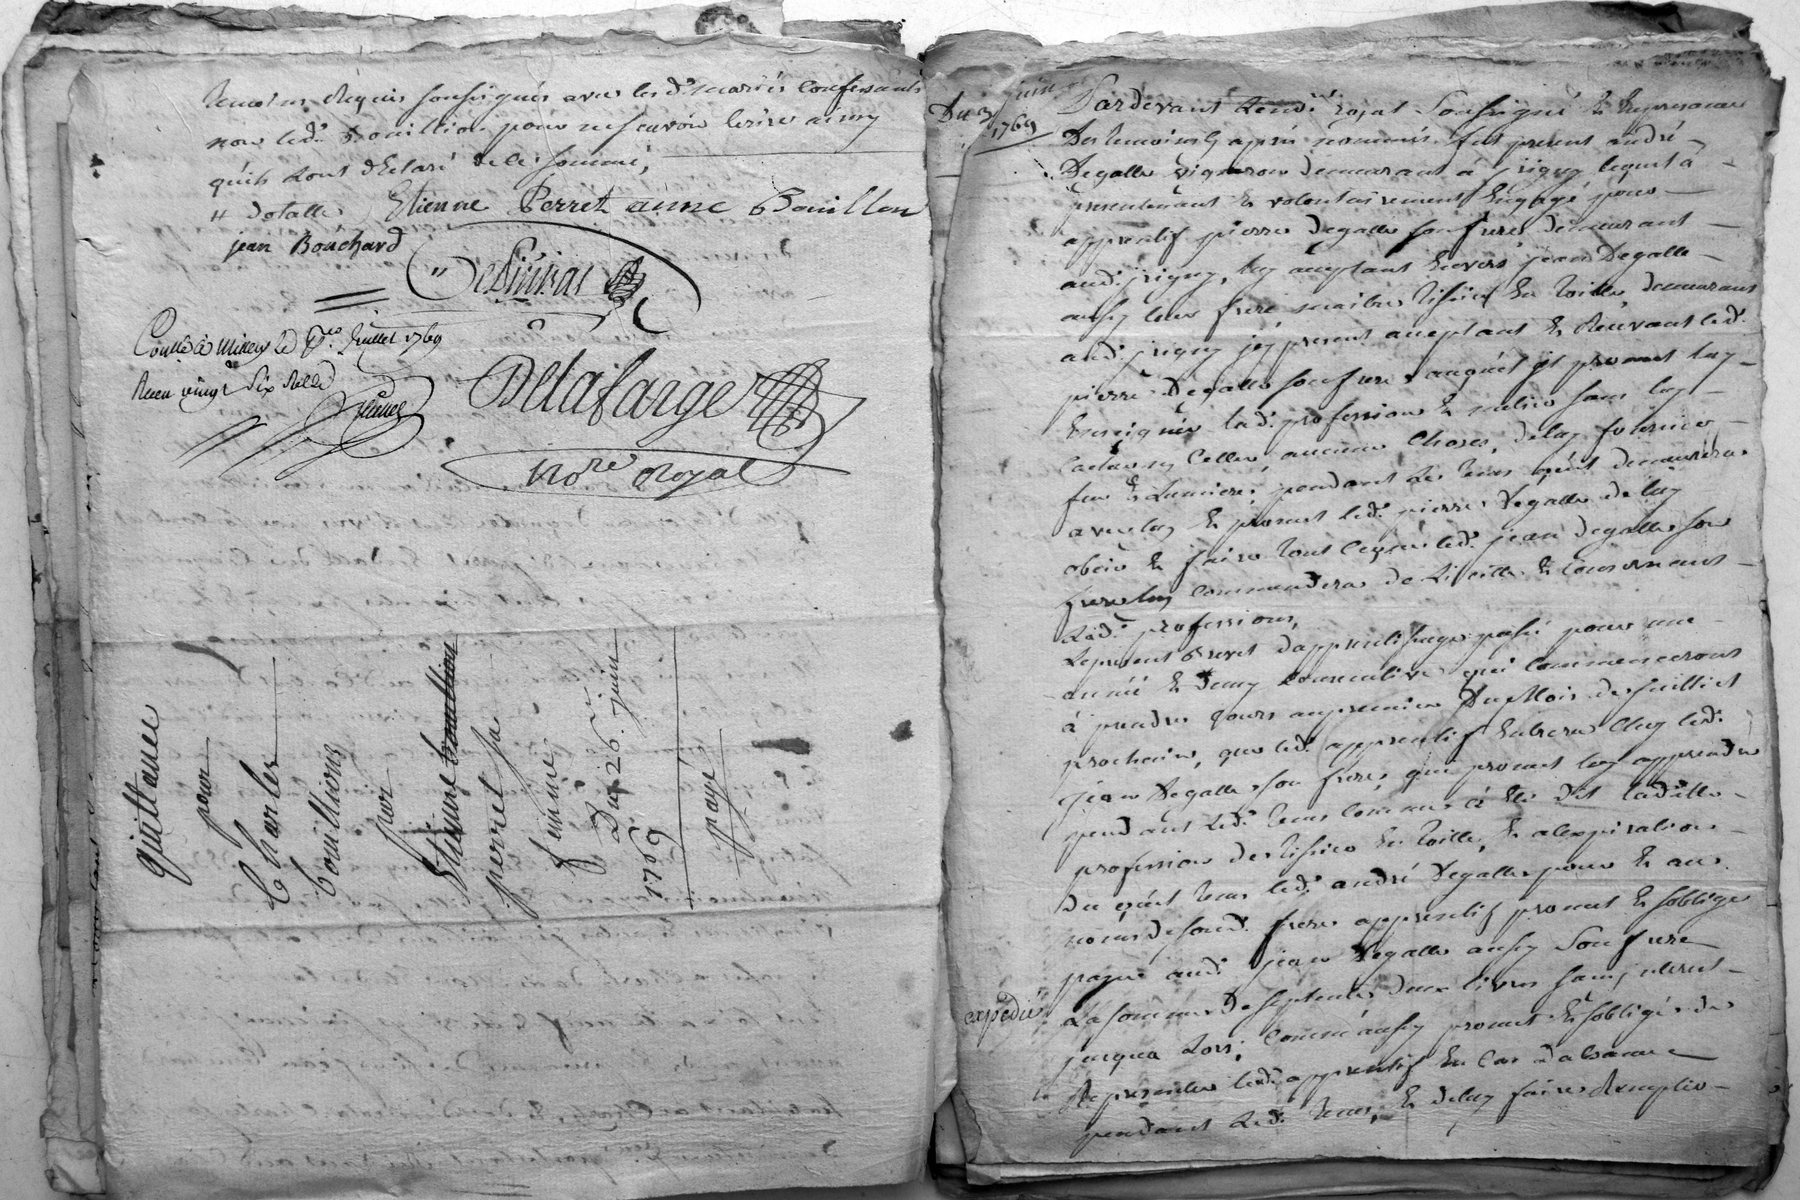 temoins Requis soussignés avec lesd. mariés confessants
non led. Bouillion pour ne savoir lecrire ainsy
quils dont declaré de ce sommé,
H Dotalle Etienne Perret anne Bouillon
jean Bouchard
Delafarge
nore Royal
Contlé à le Juillet 1769
Receu vingt six
quittance
pour
Charles
bouillions
par
Etienne bouillion
perret sa
femme
Du 26. juin
1769
payé
Du juin
1769
Pardevant Lenore royal soussigné & En presence
Des temoins cy après nommés fut present andré
Degalle vigneron demeurant à jrigny lequel à
presentement & volontairement Engagé pour
apprentif pierre Degalle son frere demeurant
aud. jrigny, luy aceptant Envers jean Degalle
aussy leur frere maitre tissier En toille, demeurant
aud. jrigny jcy present aceptant & Reuvant led.
pierre Degalle son frere auquel jl promet luy
Enseigner lad. profession & metier sans luy
Caeler En Celle aucune Choses, deluy fournir
feu & Lumiere, pendant Le tems quil demeurera
avec luy & promet led. pierre Degalle de luy
obeir & faire tout Ceque led. jean degalle son
frere luy commandera de Licitte & Concernant
Lad. profession,
Lepresent Brevet Dapprentissage passé pour une
année & Demy consecutive qui Commencerons
à prendre Cours aupremier Du Mois de juilliet
prochain, que led. apprentif Entrera Chez led.
jean Degalle son frere, qui promet luy apprendre
pendant Led. tems Comme à Eté Dit Ladite
profession de tissier En toille, & alexpiration
Du quel tems led. andré Degalle pour & au
nom de soud. frere apprentif promet & soblige
payer aud. jean Degalle aussy son frere
expedié La somme De septente deux livres sans jnterest
jusqua Lors, Comme aussy promet & soblige de
Representer led. apprentif En Cas dabsence
pendant Led. tems, & deluy faire Remplir